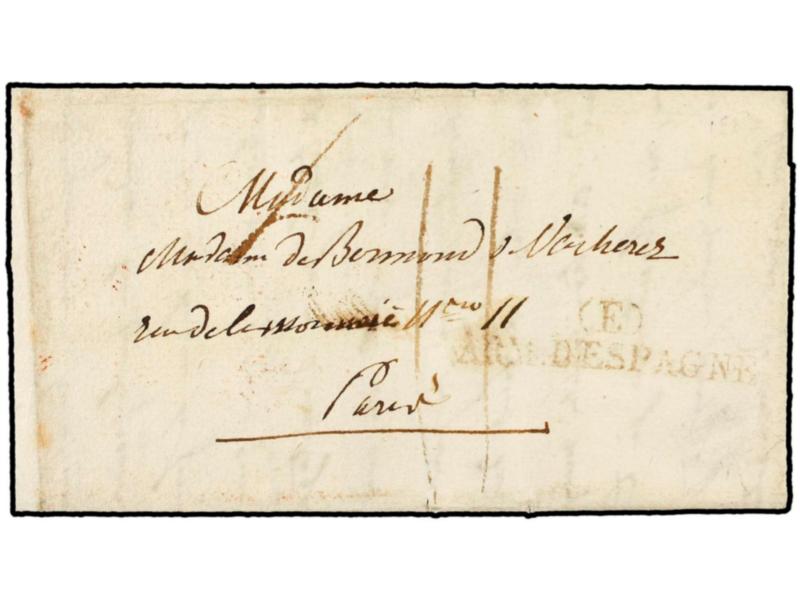 Madame
Madame de Bermond
rue de la monnaie Nro 11
(E)
ARM. D'ESPAGNE
Paris